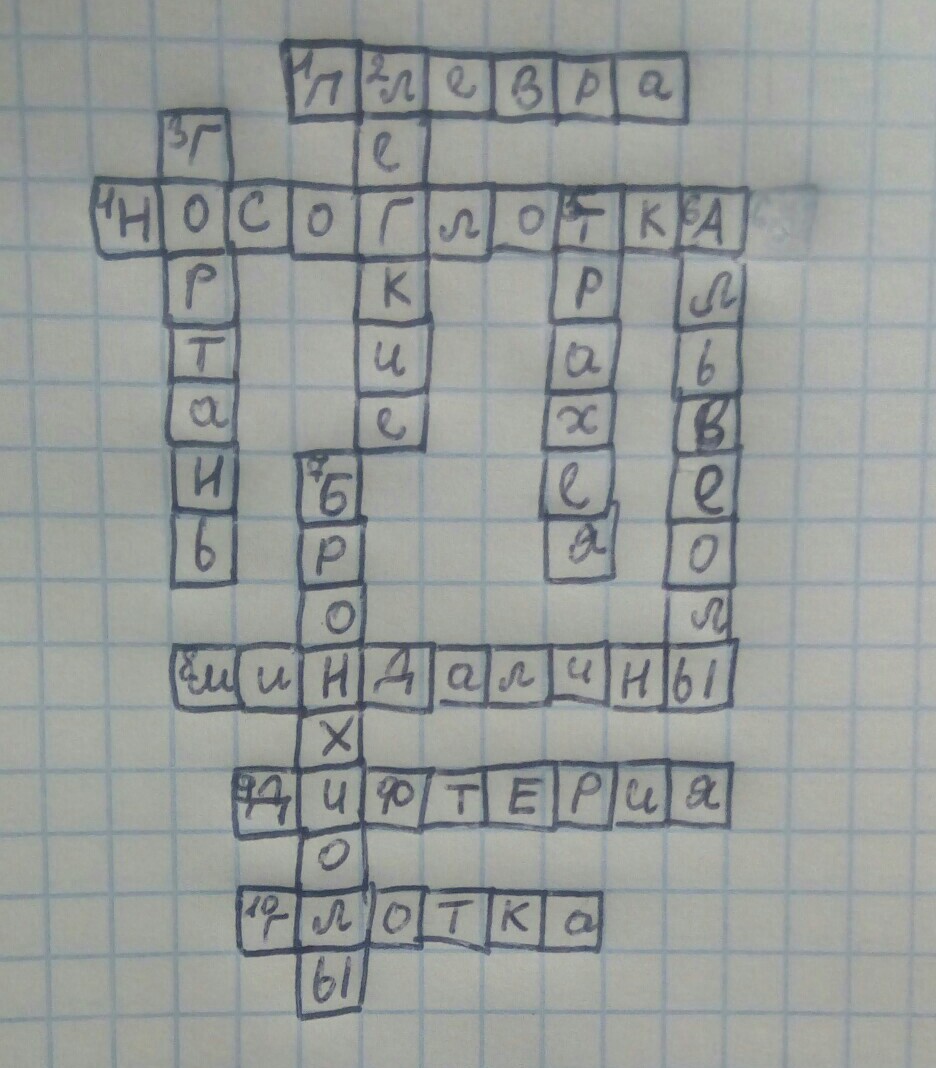 1 Плевра
2 легкие
3 Гортань
4 НОСОГлОТКА
5 Трахея
6 Альвеолы
7 Бронхиолы
8 миндалины
9 ДифТЕРия
10 глотка